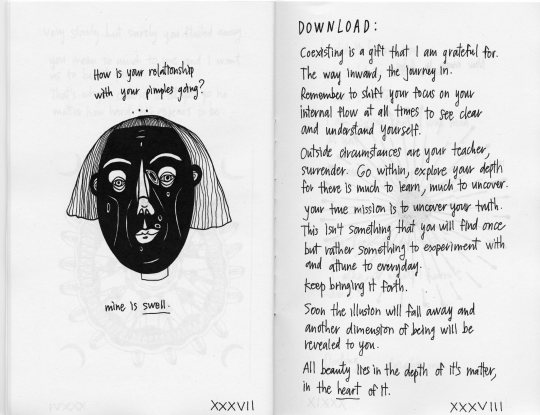 How is your relationship
with your pimples going?
mine is swell.
XXXVII
DOWNLOAD:
Coexisting is a gift that I am grateful for.
The way inward, the journey in.
Remember to shift your focus on your
internal flow at all times to see clear
and understand yourself.
Outside circumstances are your teacher,
surrender. Go within, explore your depth
for there is much to learn, much to uncover.
your true mission is to uncover your truth.
This isn't something that you will find once
but rather something to experiment with
and attune to everyday.
Keep bringing it forth.
Soon the illusion will fall away and
another dimension of being will be
revealed to you.
All beauty lies in the depth of it's matter,
in the heart of it.
XXXVIII